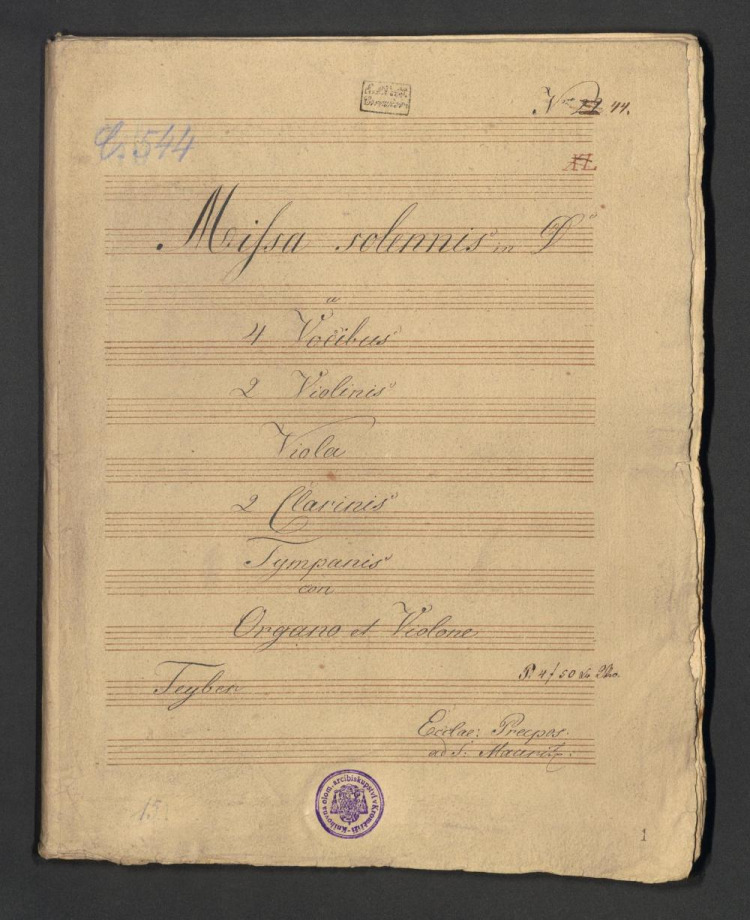 Nro 44.
C. 544
XL
Missa solennis in D
a
4 Vocibus
2 Violinis
Viola
2 Clarinis
Tympanis
con
Organo et Violone
Teyber
Ecclae: Praepos.
ad S. Mauritz.
15.
Knihovna olom. arcibiskupství v Kroměříži
1